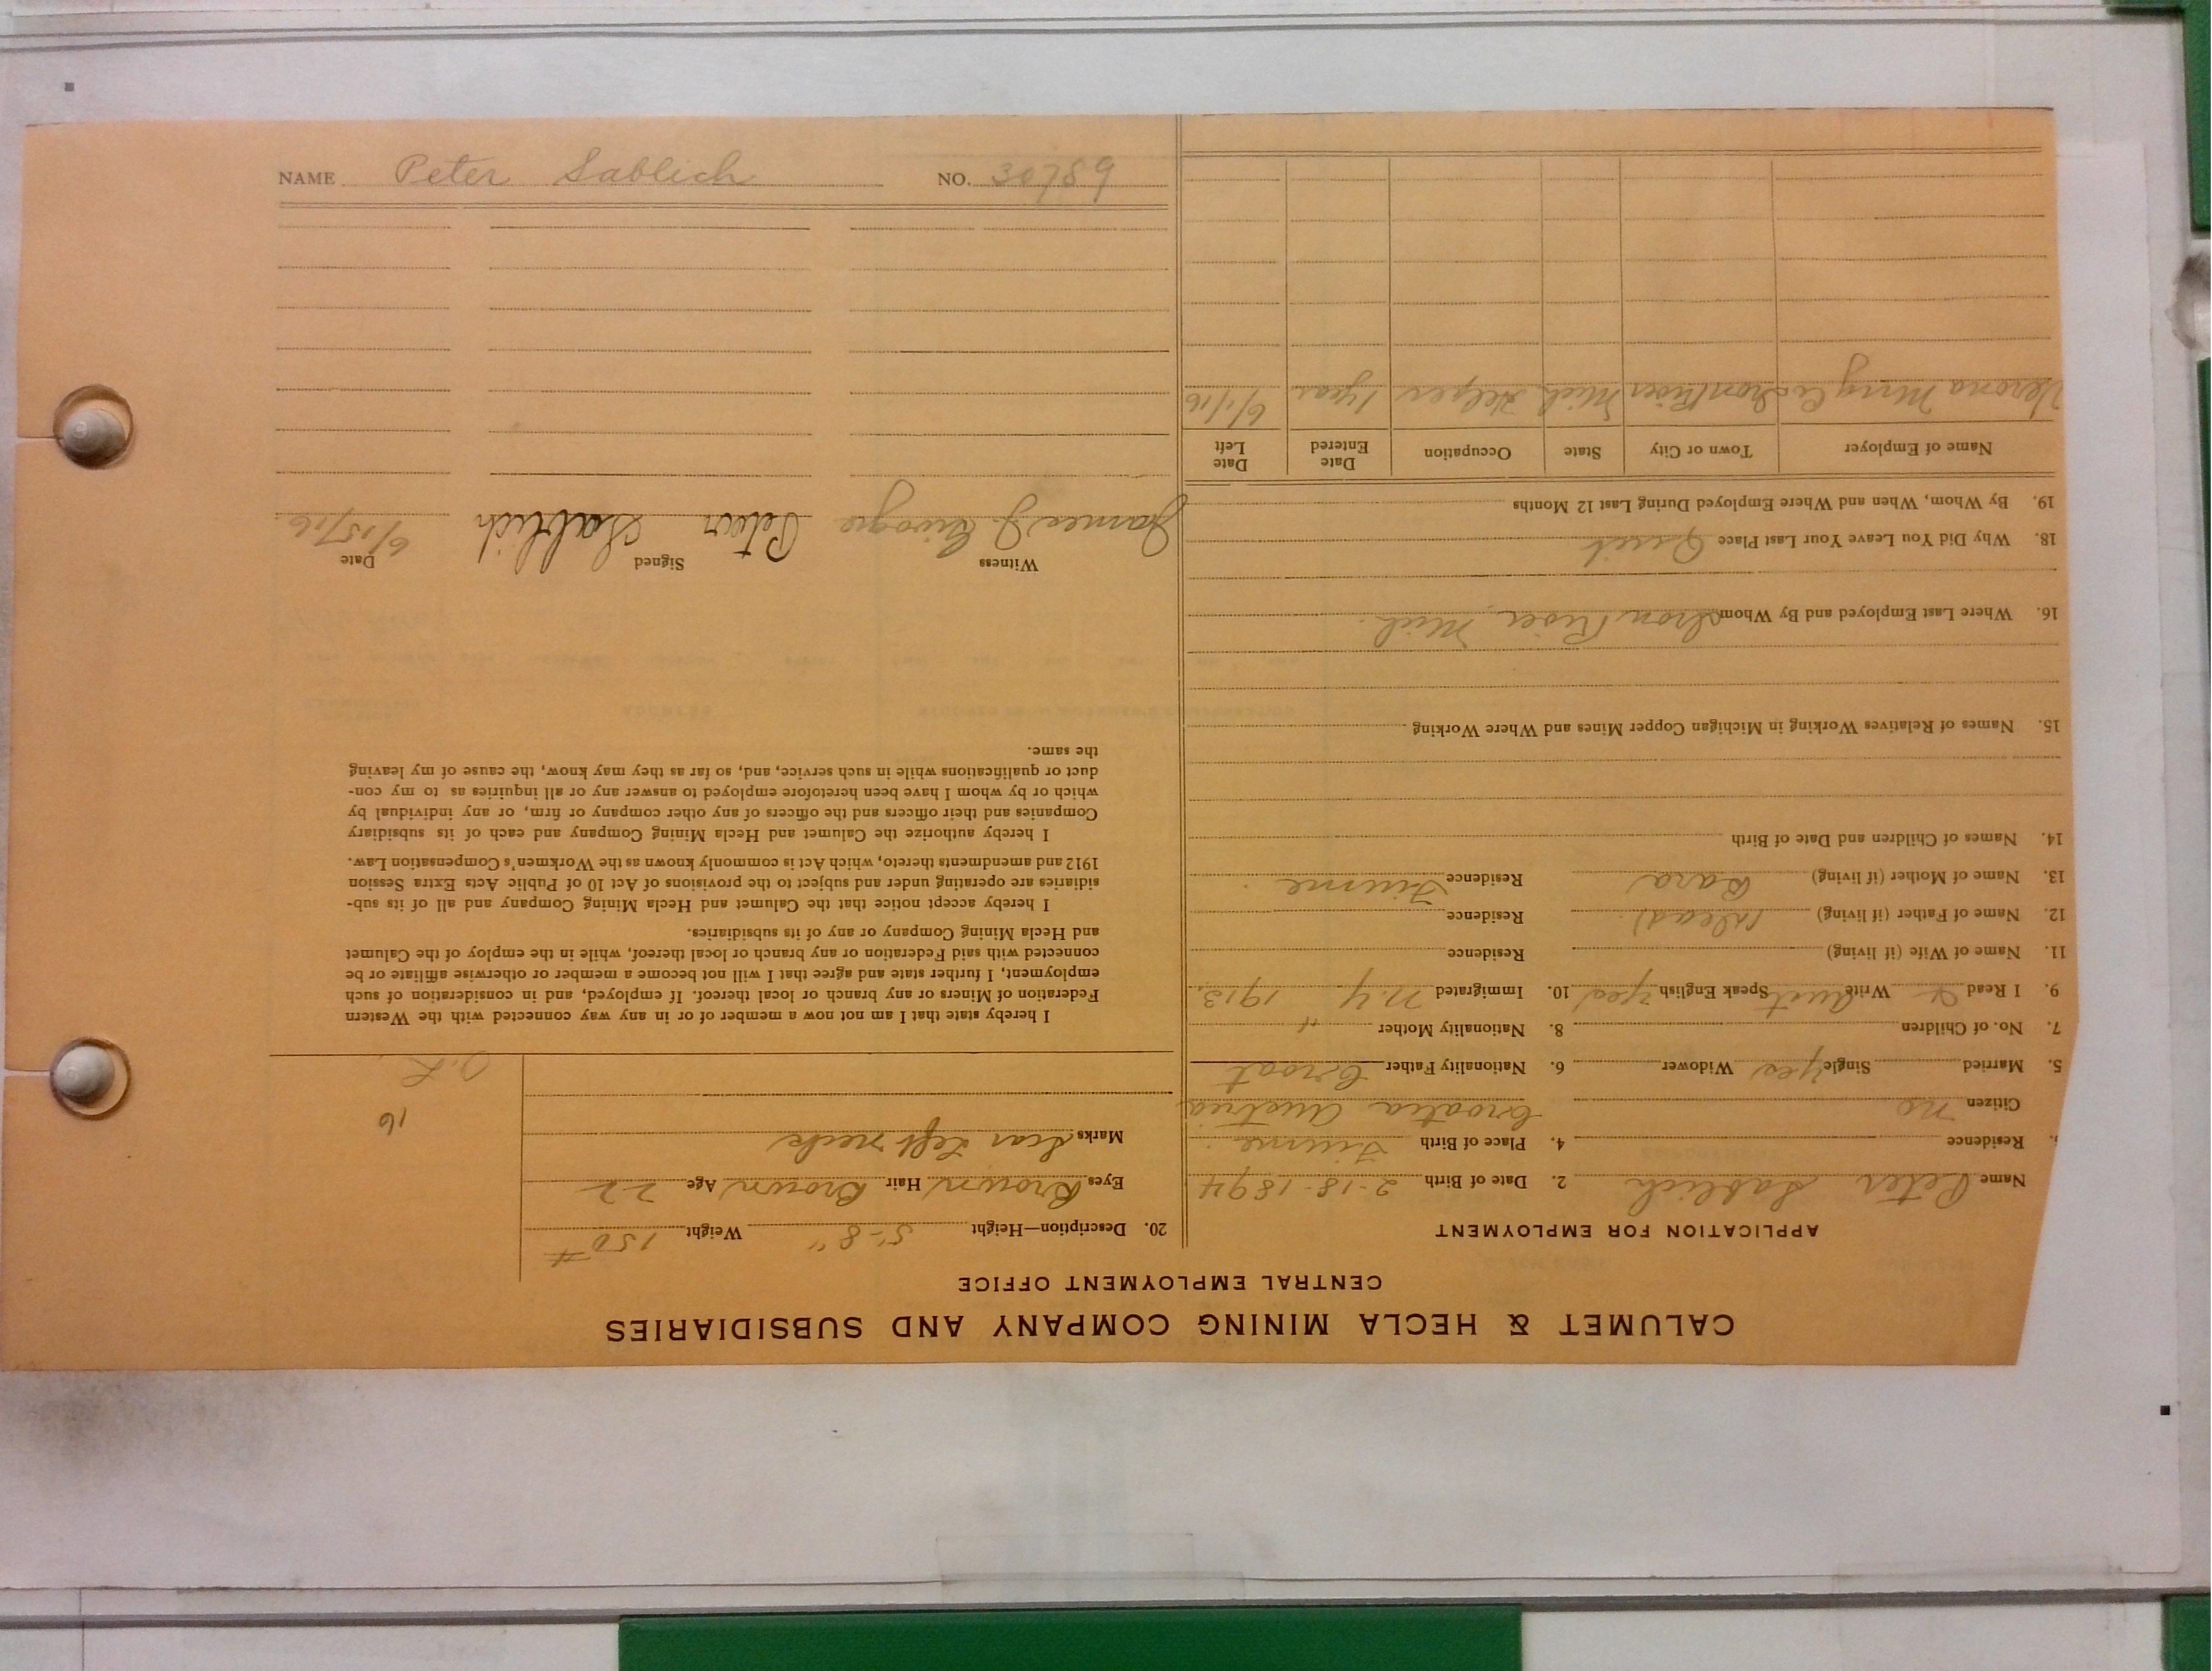 NAME Peter Sablich NO. 30789
CALUMET & HECLA MINING COMPANY AND SUBSIDIARIES
CENTRAL EMPLOYMENT OFFICE
APPLICATION FOR EMPLOYMENT
Name Peter Sablich 2. Date of Birth 2-18-1894
Residence 4. Place of Birth Fiume
Citizen no Croatia Austria
5. Married Single yes Widower 6. Nationality Father Croat
7. No. of Children 8. Nationality Mother "
9. I Read & Write Aust Speak English yes 10. Immigrated N.Y. 1913
11. Name of Wife (if living) Residence
12. Name of Father (if living) (dead) Residence
13. Name of Mother (if living) Bara Residence Fiume
14. Names of Children and Date of Birth
15. Names of Relatives Working in Michigan Copper Mines and Where Working
16. Where Last Employed and By Whom Iron River Mich.
18. Why Did You Leave Your Last Place Quit
19. By Whom, When and Where Employed During Last 12 Months
Name of Employer Town or City State Occupation Date Entered Date Left
Verona Mng Co Iron River Mich Helper 1 year 6/1/16
20. Description—Height 5'-8" Weight 150 #
Eyes Brown Hair Brown Age 22
Marks Scar Left neck
16
O.K.
I hereby state that I am not now a member of or in any way connected with the Western
Federation of Miners or any branch or local thereof. If employed, and in consideration of such
employment, I further state and agree that I will not become a member or otherwise affiliate or be
connected with said Federation or any branch or local thereof, while in the employ of the Calumet
and Hecla Mining Company or any of its subsidiaries.
I hereby accept notice that the Calumet and Hecla Mining Company and all of its sub-
sidiaries are operating under and subject to the provisions of Act 10 of Public Acts Extra Session
1912 and amendments thereto, which Act is commonly known as the Workmen's Compensation Law.
I hereby authorize the Calumet and Hecla Mining Company and each of its subsidiary
Companies and their officers and the officers of any other company or firm, or any individual by
which or by whom I have been heretofore employed to answer any or all inquiries as to my con-
duct or qualifications while in such service, and, so far as they may know, the cause of my leaving
the same.
Witness Signed Date
James J. Peter Sablich 6/15/16